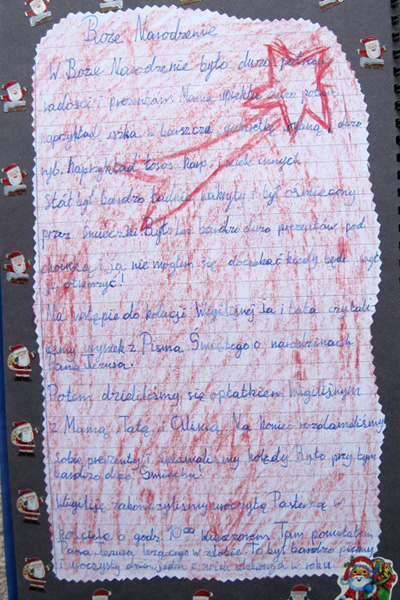 Boże Narodzenie
W Boże Narodzenie było dużo potraw
radości i prezentów. Mama upiekła dużo potraw
naprzykład uszka w barszczu, galaretkę, rybną i dużo
ryb. Naprzykład łosoś, karp i wiele innych
Stół był bardzo ładnie nakryty i był oświecony
przez świeczki. Było też bardzo dużo prezentów pod
choinką i ja nie mogłem się doczekać kiedy będę mógł
je otworzyć!
Na wstępie do kolacji Wigilijnej Ja i tata czytali
śmy urywek z Pisma Świętego o narodzinach
Pana Jezusa.
Potem dzieliliśmy się opłatkiem Wigilijnym
z Mamą, Tatą i Oliwią. Na koniec rozdawaliśmy
sobie prezenty i śpiewaliśmy kolędy. Było przy tym
bardzo dużo śmiechu!
Wigilię zakończyliśmy uroczystą Pasterką w
kościele o godz. 10⁰⁰ wieczorem. Tam powitałem
Pana Jezusa leżącego w żłobie. To był bardzo piękny
i uroczysty dzień, jeden z moich ulubionych w roku.